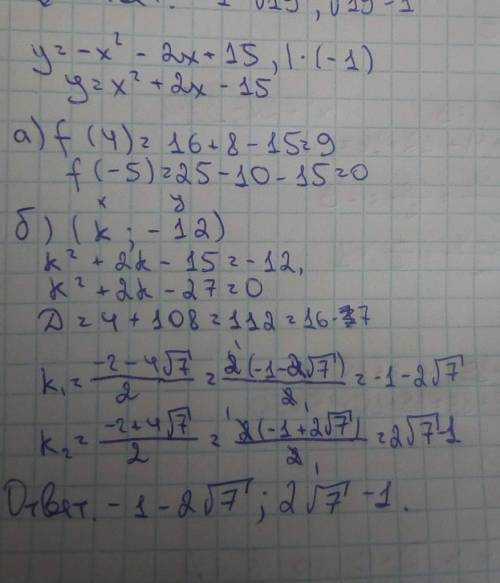 1 √19, √19 - 1
y = -x² - 2x + 15, | · (-1)
y = x² + 2x - 15
а) f (4) = 16 + 8 - 15 = 9
f (-5) = 25 - 10 - 15 = 0
x y
б) (k ; -12)
k² + 2k - 15 = -12,
k² + 2k - 27 = 0
D = 4 + 108 = 112 = 16 · 7
k₁ = (-2 - 4√7)/2 = 2(-1 - 2√7)/2 = -1 - 2√7
k₂ = (-2 + 4√7)/2 = 2(-1 + 2√7)/2 = 2√7 - 1
Ответ. -1 - 2√7 ; 2√7 - 1.